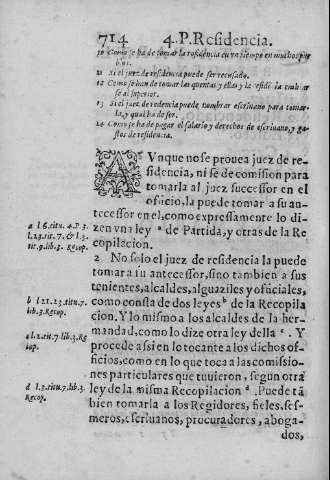 714 4. P. Residencia.
10 Como se ha de tomar la residencia en un tiempo en muchos pue
blos.
11 Si el juez de residencia puede ser recusado.
12 Como se han de tomar las quentas y ellas y la residẽ. la embiar
se al superior.
13 Si el juez de redencia puede nombrar escriuano para tomar-
la, y qual ha de ser.
14 Como se ha de pagar el salario y derechos de escriuano, y ga-
stos de residencia.
AVnque no se prouea juez de re-
sidencia, ni se de comision para
tomarla al juez successor en el
oficio, la puede tomar a su an-
tecessor en el, como expressamente lo di-
zen vna ley a de Partida, y otras de la Re
copilacion.
a l.6. titu. 4. P. 3.
l.23. tit. 7. & l.3.
tit. 9. lib. 3. Recop.
2 No solo el juez de residencia la puede
tomar a su antecessor, sino tambien a sus
tenientes, alcaldes, alguaziles y oficiales,
como consta de dos leyes b de la Recopila
cion. Y lo mismo a los alcaldes de la her-
mandad, como lo dize otra ley della c. Y
procede assi en lo tocante a los dichos of-
ficios, como en lo que toca a las comissio-
nes particulares que tuuieron, segun otra
ley de la misma Recopilacion d. Puede tã
bien tomarla a los Regidores, fieles, ses-
meros, escriuanos, procuradores, aboga-
dos,
b l.21.23. titu. 7.
lib. 3. Recop.
c l.2. tit. 7. lib. 3. Re
cop.
d l.3. titu. 7. lib. 3.
Recop.